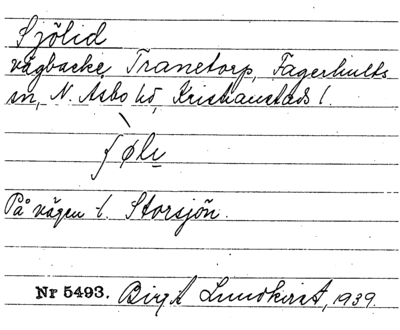 Sjölid
vägbacke, Tranetorp, Fagerhults
sn, N. Åsbo hd, Kristianstads l.
På vägen t. Storsjön.
Nr 5493. Birgit Lundkvist, 1939.